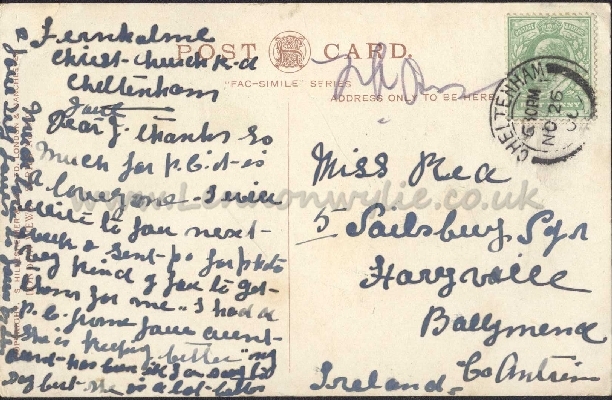 Fernholme
Christ-Church Rd
Cheltenham
Dear J. thanks so
much for p.c. it is
a lovely one. I will
write to you next-
week & send p.o for photo
very kind of you to get-
them for me. I had a
p.c. from your aunt-
she is keeping better" my
aunt- has been ill I am sorry to
say but she is a lot better
POST CARD.
"FAC-SIMILE" SERIES
ADDRESS ONLY TO BE HERE
CHELTENHAM
6 30PM
NO 26
Miss Rea
5 Sailsbury Sqr
Harryville
Ballymena
Co Antrim
Ireland.
www.Lennonwylie.co.uk